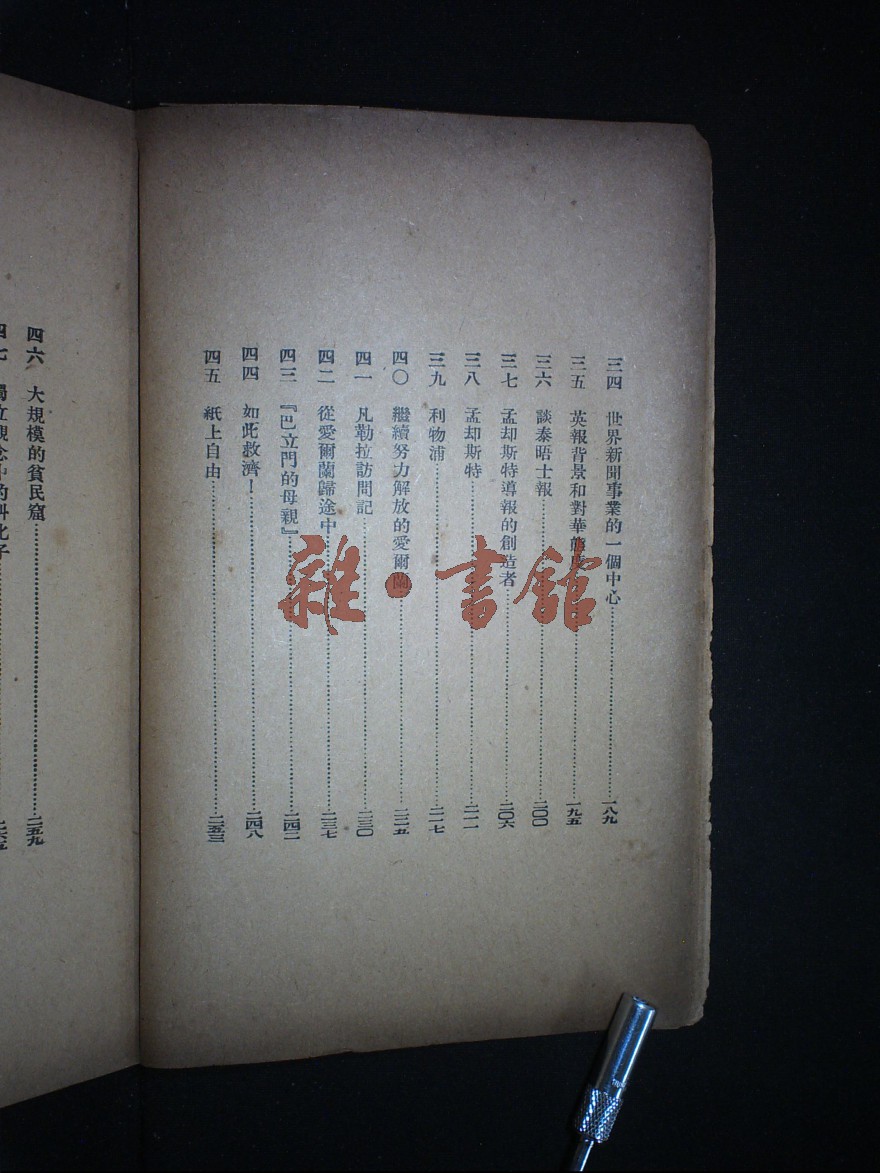 三四 世界新聞事業的一個中心……一八九
三五 英報背景和對華態度……一九五
三六 談泰晤士報……二〇〇
三七 孟却斯特導報的創造者……二〇六
三八 孟却斯特……二一一
三九 利物浦……二一七
四〇 繼續努力解放的愛爾蘭……二二五
四一 凡勒拉訪問記……二三〇
四二 從愛爾蘭歸途中……二三七
四三 『巴立門的母親』……二四二
四四 如此救濟！……二四八
四五 紙上自由……二五三
四六 大規模的貧民窟……二五九
四七 獨立觀念中的科化子
雜·書館